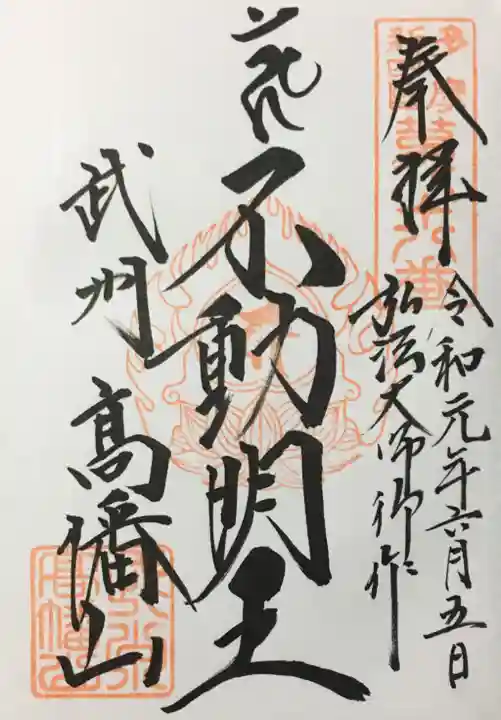 奉拝
令和元年六月五日
弘法大師御作
不動明王
武州
高幡山